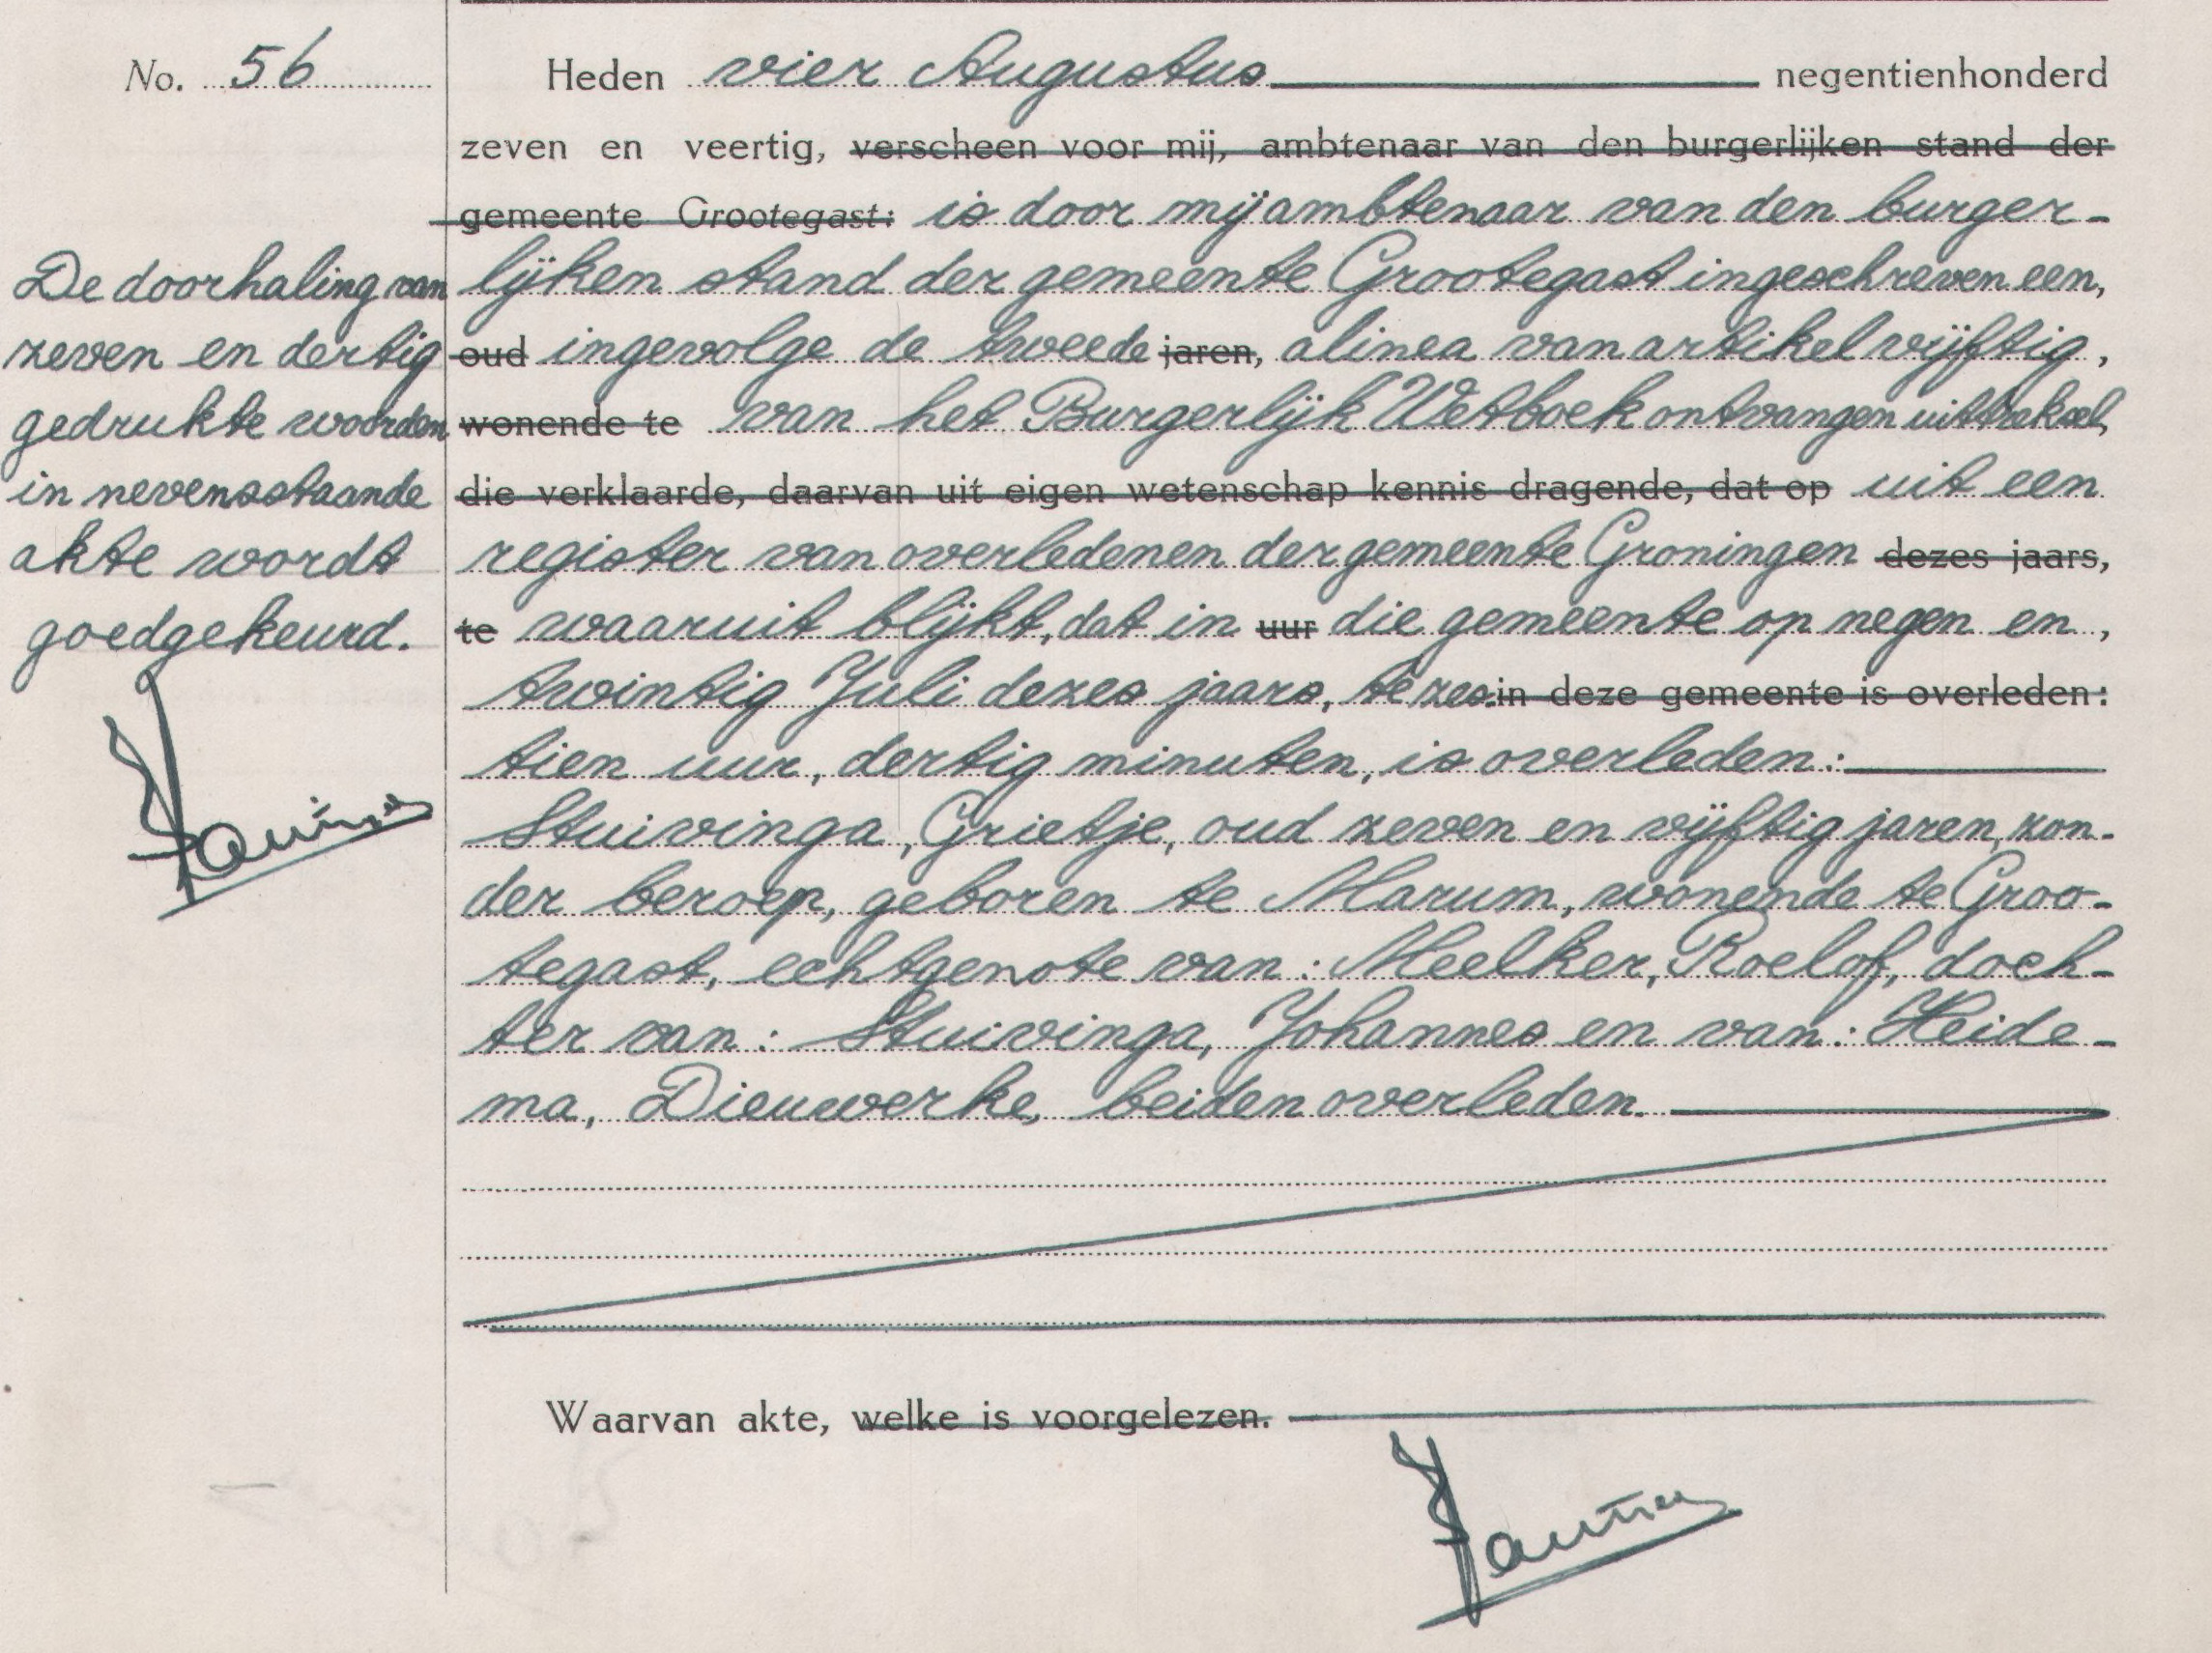 No. 56
Heden vier Augustus negentienhonderd
zeven en veertig, verscheen voor mij, ambtenaar van den burgerlijken stand der
gemeente Grootegast: is door mij ambtenaar van den burger-
lijken stand der gemeente Grootegast ingeschreven een,
oud ingevolge de tweede jaren, alinea van artikel vijftig,
wonende te van het Burgerlijk Wetboek ontvangen uittreksel,
die verklaarde, daarvan uit eigen wetenschap kennis dragende, dat op uit een
register van overledenen der gemeente Groningen dezes jaars,
te waaruit blijkt, dat in uur die gemeente op negen en,
twintig Juli dezes jaars, te zes- in deze gemeente is overleden:
tien uur, dertig minuten, is overleden:
Stuivinga, Grietje, oud zeven en vijftig jaren, zon-
der beroep, geboren te Marum, wonende te Groo-
tegast, echtgenote van: Meelker, Roelof, doch-
ter van: Stuivinga, Johannes en van: Heide-
ma, Dieuwerke, beiden overleden.
Waarvan akte, welke is voorgelezen.
De doorhaling van
zeven en dertig
gedrukte woorden
in nevensstaande
akte wordt
goedgekeurd.